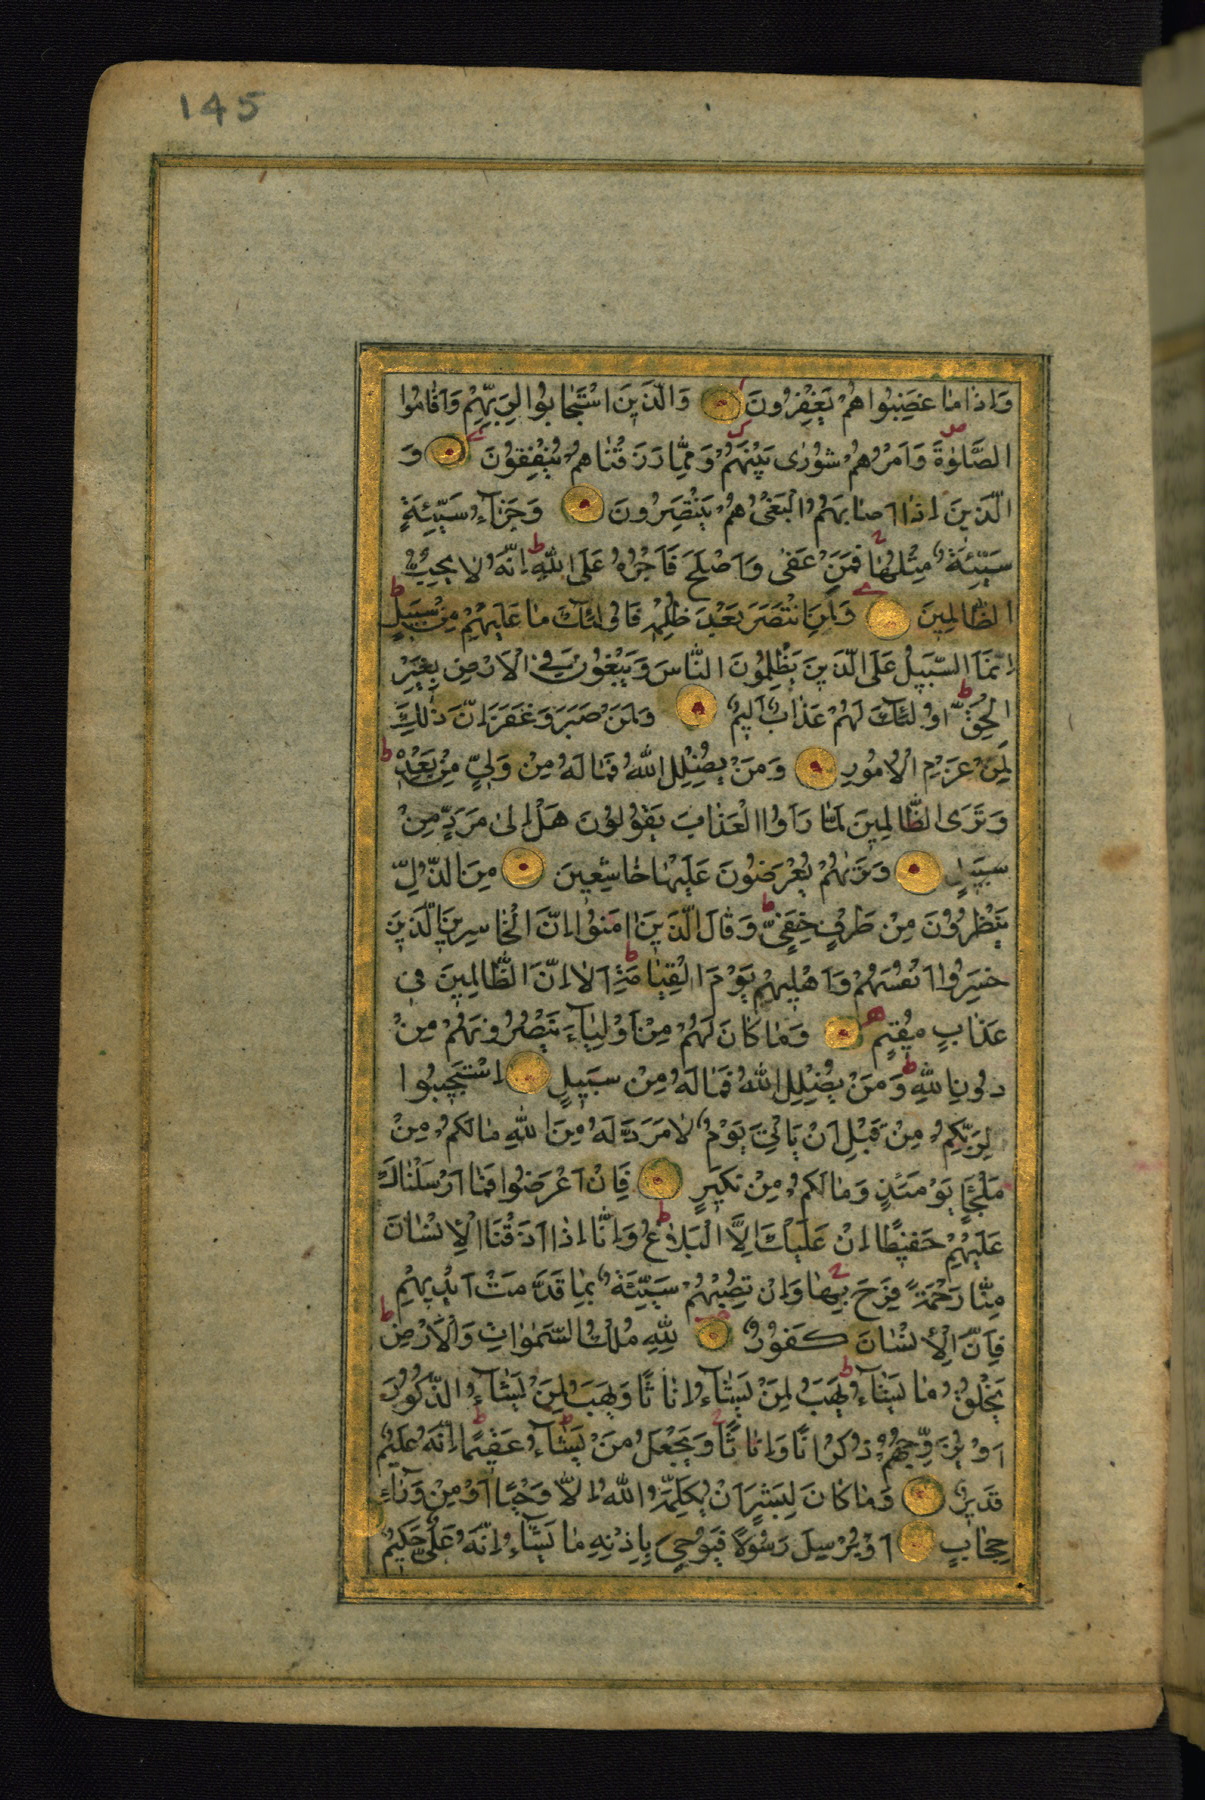 145
وَاِذَا مٰا غَضِبُوا هُمْ يَغْفِرُونَ وَالَّذِينَ اسْتَجٰابُوا لِرَبِّهِمْ وَاَقٰامُوا
الصَّلٰوةَ وَاَمْرُهُمْ شُورٰى بَيْنَهُمْ وَمِمّٰا رَزَقْنٰاهُمْ يُنْفِقُونَ وَ
الَّذِينَ اِذٰا اَصٰابَهُمُ الْبَغْىُ هُمْ يَنْتَصِرُونَ وَجَزٰآءُ سَيِّئَةٍ
سَيِّئَةٌ مِثْلُهٰا فَمَنْ عَفٰى وَاَصْلَحَ فَاَجْرُهُ عَلَى اللّٰهِ اِنَّهُ لٰا يُحِبُّ
الظّٰالِمِينَ وَلَمَنِ انْتَصَرَ بَعْدَ ظُلْمِهِ فَاُولٰئِكَ مٰا عَلَيْهِمْ مِنْ سَبِيلٍ
اِنَّمَا السَّبِيلُ عَلَى الَّذِينَ يَظْلِمُونَ النّٰاسَ وَيَبْغُونَ فِى الْاَرْضِ بِغَيْرِ
الْحَقِّ اُولٰئِكَ لَهُمْ عَذٰابٌ اَلِيمٌ وَلَمَنْ صَبَرَ وَغَفَرَ اِنَّ ذٰلِكَ
لَمِنْ عَزْمِ الْاُمُورِ وَمَنْ يُضْلِلِ اللّٰهُ فَمٰا لَهُ مِنْ وَلِىٍّ مِنْ بَعْدِهِ
وَتَرَى الظّٰالِمِينَ لَمّٰا رَاَوُا الْعَذٰابَ يَقُولُونَ هَلْ اِلٰى مَرَدٍّ مِنْ
سَبِيلٍ وَتَرٰيهُمْ يُعْرَضُونَ عَلَيْهٰا خٰاشِعِينَ مِنَ الذُّلِّ
يَنْظُرُونَ مِنْ طَرْفٍ خَفِىٍّ وَقٰالَ الَّذِينَ اٰمَنُوا اِنَّ الْخٰاسِرِينَ الَّذِينَ
خَسِرُوا اَنْفُسَهُمْ وَاَهْلِيهِمْ يَوْمَ الْقِيٰامَةِ اَلٰا اِنَّ الظّٰالِمِينَ فِى
عَذٰابٍ مُقِيمٍ وَمٰا كٰانَ لَهُمْ مِنْ اَوْلِيٰآءَ يَنْصُرُونَهُمْ مِنْ
دُونِ اللّٰهِ وَمَنْ يُضْلِلِ اللّٰهُ فَمٰا لَهُ مِنْ سَبِيلٍ اِسْتَجِيبُوا
لِرَبِّكُمْ مِنْ قَبْلِ اَنْ يَاْتِىَ يَوْمٌ لٰا مَرَدَّ لَهُ مِنَ اللّٰهِ مٰا لَكُمْ مِنْ
مَلْجَاٍ يَوْمَئِذٍ وَمٰا لَكُمْ مِنْ نَكِيرٍ فَاِنْ اَعْرَضُوا فَمٰا اَرْسَلْنٰاكَ
عَلَيْهِمْ حَفِيظًا اِنْ عَلَيْكَ اِلَّا الْبَلٰاغُ وَاِنّٰا اِذٰا اَذَقْنَا الْاِنْسٰانَ
مِنّٰا رَحْمَةً فَرِحَ بِهٰا وَاِنْ تُصِبْهُمْ سَيِّئَةٌ بِمٰا قَدَّمَتْ اَيْدِيهِمْ
فَاِنَّ الْاِنْسٰانَ كَفُورٌ لِلّٰهِ مُلْكُ السَّمٰوٰاتِ وَالْاَرْضِ
يَخْلُقُ مٰا يَشٰآءُ يَهَبُ لِمَنْ يَشٰآءُ اِنٰاثًا وَيَهَبُ لِمَنْ يَشٰآءُ الذُّكُورَ
اَوْ يُزَوِّجُهُمْ ذُكْرٰانًا وَاِنٰاثًا وَيَجْعَلُ مَنْ يَشٰآءُ عَقِيمًا اِنَّهُ عَلِيمٌ
قَدِيرٌ وَمٰا كٰانَ لِبَشَرٍ اَنْ يُكَلِّمَهُ اللّٰهُ اِلّٰا وَحْيًا اَوْ مِنْ وَرٰآءِ
حِجٰابٍ اَوْ يُرْسِلَ رَسُولًا فَيُوحِىَ بِاِذْنِهِ مٰا يَشٰآءُ اِنَّهُ عَلِىٌّ حَكِيمٌ